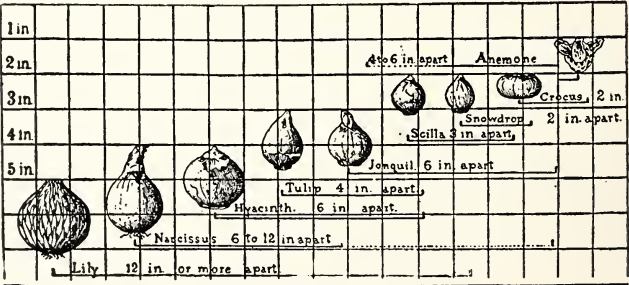 1 in
2 in.
4 to 6 in. apart Anemone
3 in.
Crocus 2 in.
Snowdrop 2 in. apart.
4 in.
Scilla 3 in apart
5 in.
Jonquil. 6 in. apart
Tulip 4 in. apart.
Hyacinth. 6 in. apart.
Narcissus 6 to 12 in apart
Lily 12 in. or more apart